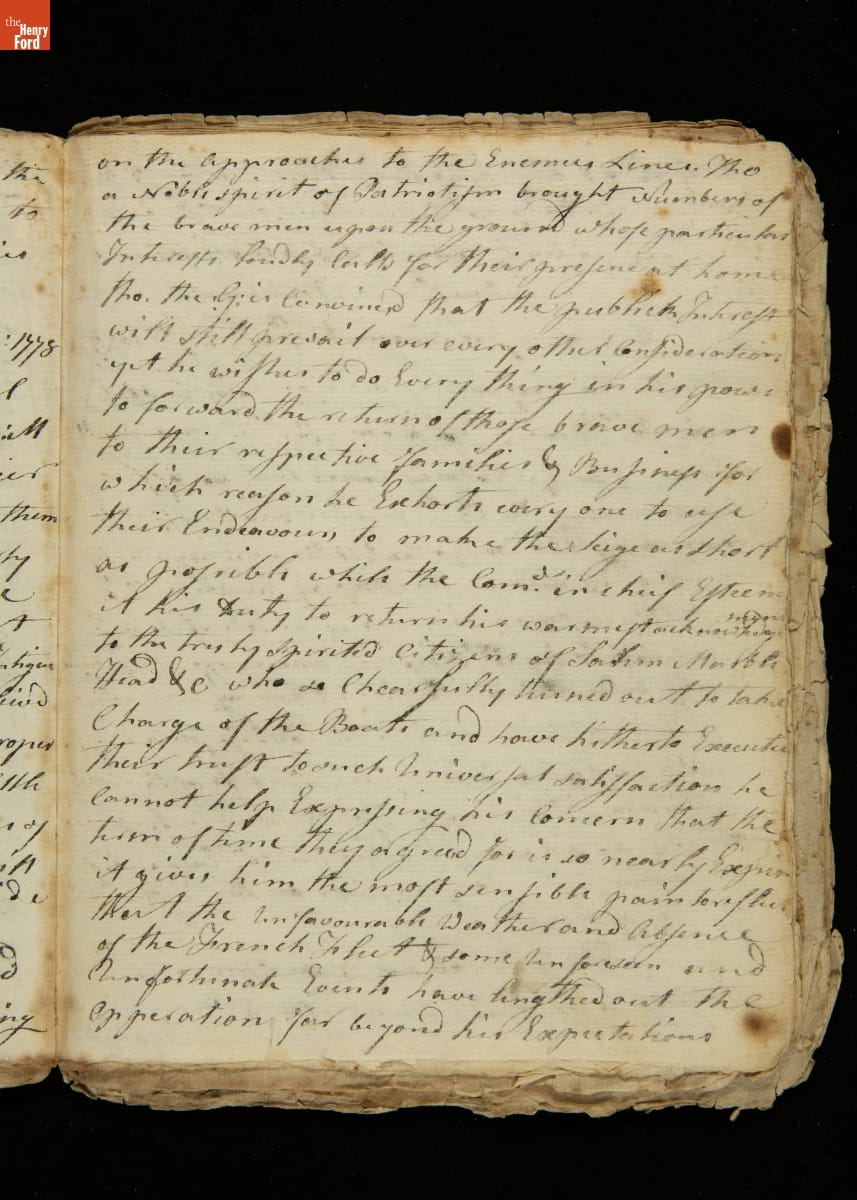 the
Henry
Ford
the
to
1778
them
of
on the Approaches to the Enemies Lines. Tho
a Noble spirit of Patriotism brought Numbers of
the brave men upon the ground whose particular
Interests loudly Calls for their presence at home
tho. the G: is Convinced that the publick Interest
will still prevail over every other Consideration
yet he wishes to do Every thing in his powe
to forward the return of those brave men
to their respective families & Business for
which reason he Exhorts every one to use
their Endeavours to make the Seige as short
as possible while the Comd. in chief Esteem
it his Duty to return his warmest acknowledge
ments
to the truly spirited Citizens of Salem Marble
Head &C who so Chearfully turned out to take
Charge of the Boats and have hitherto Execute
their trust to such Universal satisfaction he
Cannot help Expressing his Concern that the
term of time they agreed for is so nearly Expir
it gives him the most sensible pain to reflect
that the Unfavourable Weather and Absence
of the French Fleet & some Unforeseen and
Unfortunate Events have lengthed out the
Opperation far beyond his Expectations